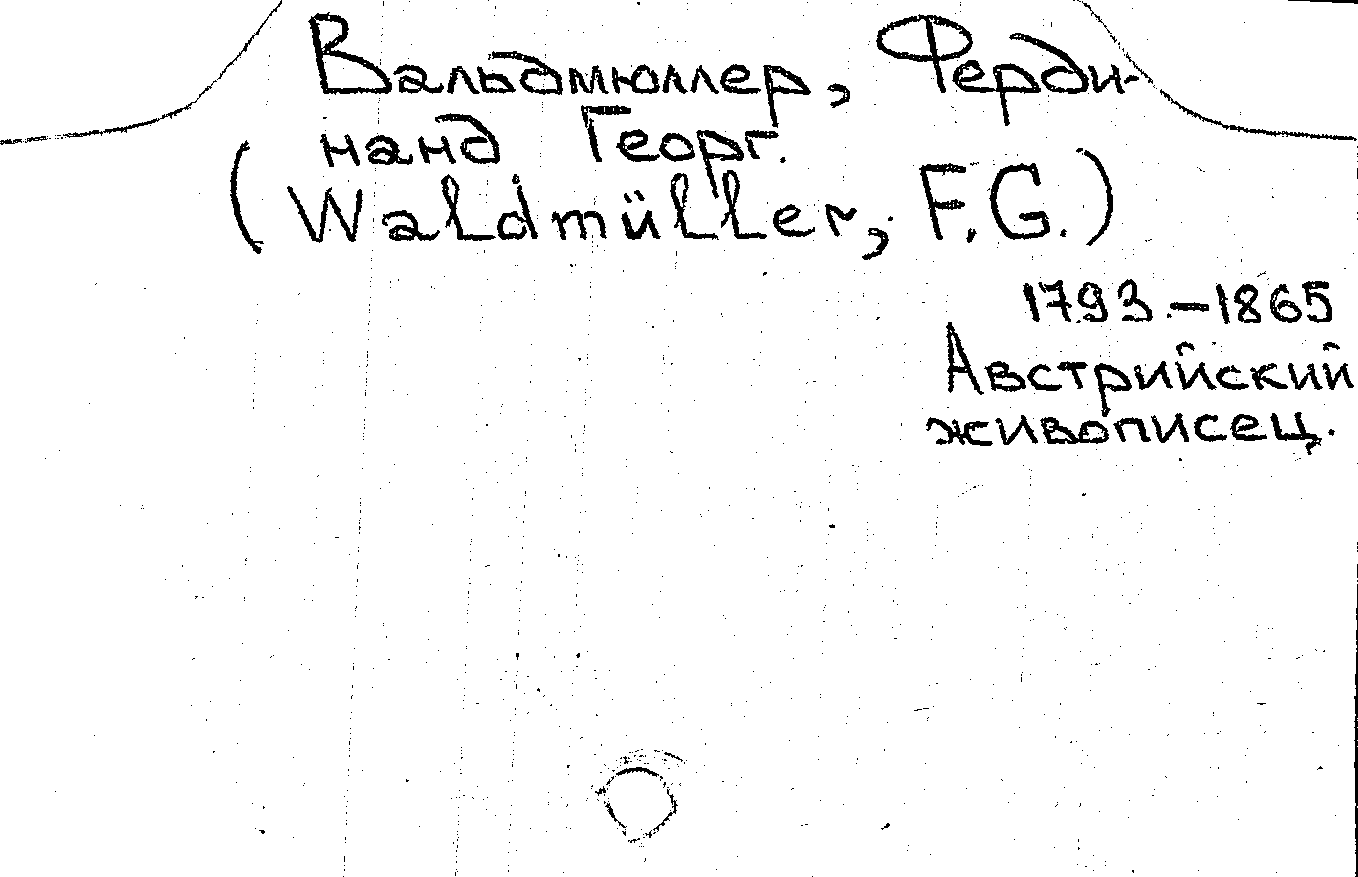 Вальдмюллер, Ферди-
нанд Георг.
(Waldmüller, F.G.)
1793.–1865
Австрийский
живописец.